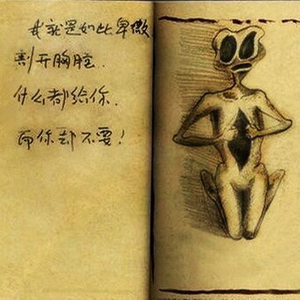 我就是如此卑微
割开胸膛.
什么都给你.
而你却不要!